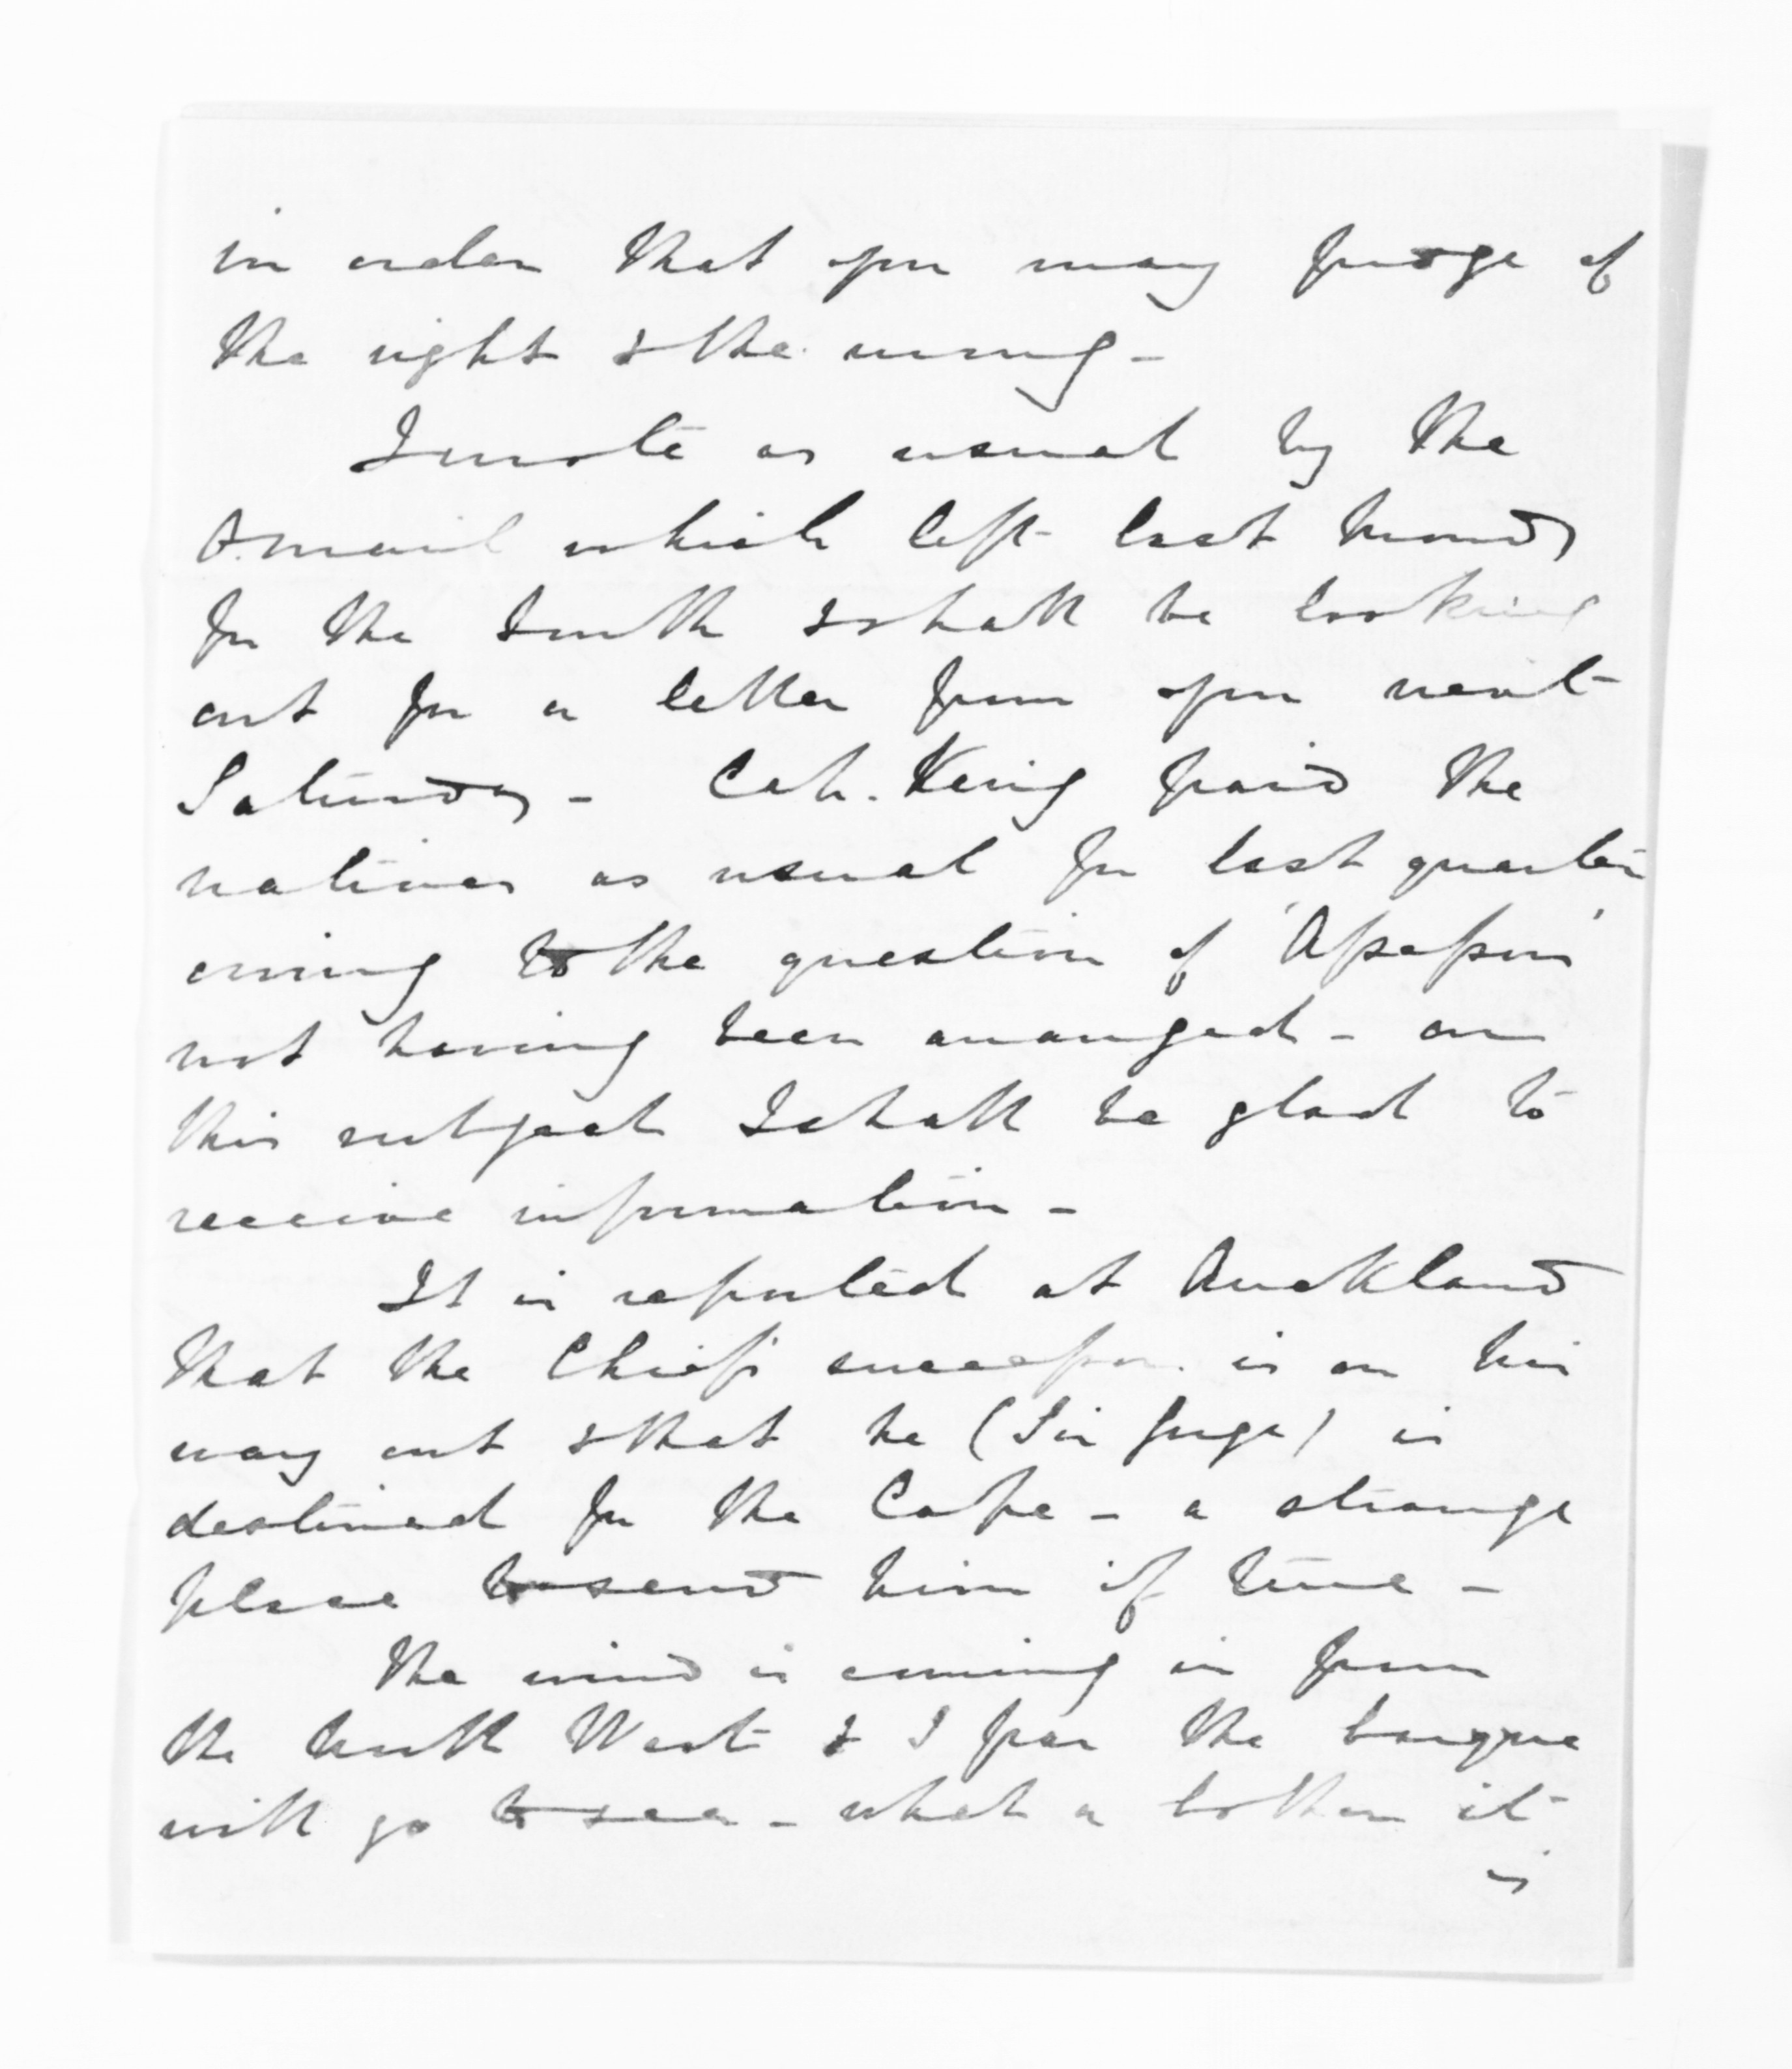 in order that you may judge of
the right & the wrong -
I wrote as usual by the
O. mail which left last Monday
for the South & shall be looking
out for a letter from you next
Saturday - Cap. King paid the
natives as usual for last quarter
owing to the question of 'Apapou'
not having been arranged - on
this subject I shall be glad to
receive information -
It is reported at Auckland
that the Chief's successor is on his
way out & that he (Sir George) is
destined for the Cape - a strange
place to send him if true -
The wind is coming in from
the North West & I fear the barque
will go to sea - what a bother it
is